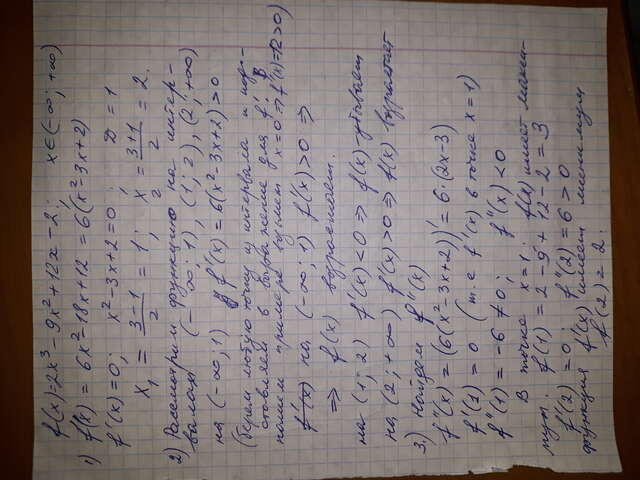 f(x)=2x³-9x²+12x-2; x∈(-∞; +∞)
1) f'(x) = 6x²-18x+12 = 6(x²-3x+2)
f'(x)=0; x²-3x+2=0; D = 1
x₁ = (3-1)/2 = 1; x₂ = (3+1)/2 = 2.
2) Рассмотрим функцию на интер-
валах (-∞; 1), (1; 2), (2; +∞)
на (-∞; 1) f'(x) = 6(x²-3x+2) > 0
(берем любую точку из интервала и под-
ставляем в выражение для f'. В
нашем примере возьмем x=0 ⇒ f'(0)=12>0)
f(x) на (-∞; 1) f'(x)>0 ⇒
⇒ f(x) возрастает.
на (1; 2) f'(x)<0 ⇒ f(x)-убывает
на (2; +∞) f'(x)>0 ⇒ f(x) возрастает
3.) Найдем f''(x)
f''(x) = (6(x²-3x+2))' = 6·(2x-3)
f'(1) = 0 (т.е f'(x) в точке x=1)
f''(1) = -6 ≠ 0; f''(x) < 0
В точке x=1: f(x) имеет макси-
мум. f(1) = 2-9+12-2 = 3
f'(2) = 0 f''(2) = 6 > 0
функция f(x) имеет минимум
f(2) = 2.